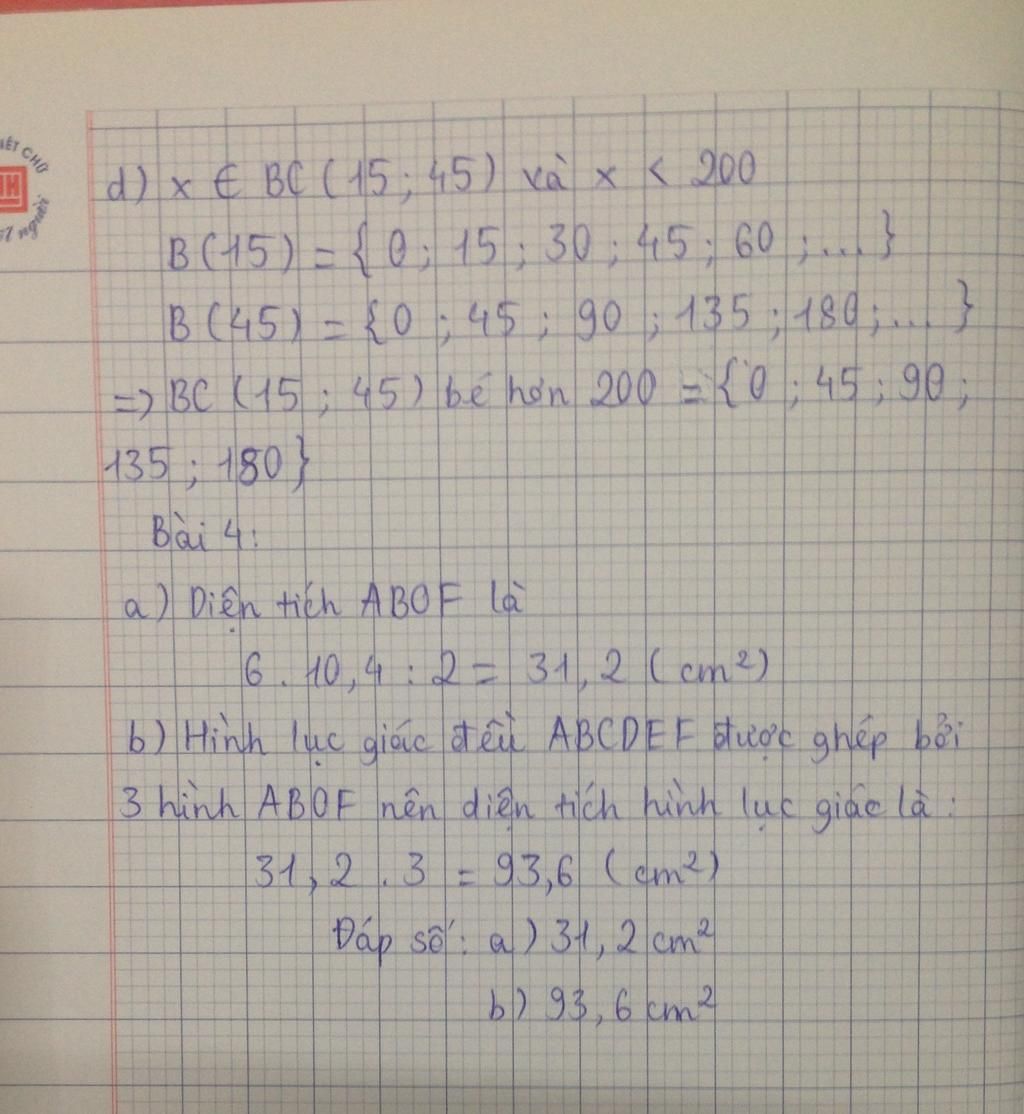 IẾT CHỮ
IH
ết người
d) x ∈ BC (15 ; 45) và x < 200
B (15) = { 0 ; 15 ; 30 ; 45 ; 60 ; ... }
B (45) = {0 ; 45 ; 90 ; 135 ; 180 ; ... }
=> BC (15 ; 45) bé hơn 200 = {0 ; 45 ; 90 ;
135 ; 180 }
Bài 4:
a) Diện tích ABOF là
6 . 10,4 : 2 = 31,2 (cm²)
b) Hình lục giác đều ABCDEF được ghép bởi
3 hình ABOF nên diện tích hình lục giác là :
31,2 . 3 = 93,6 (cm²)
Đáp số : a) 31,2 cm²
b) 93,6 cm²